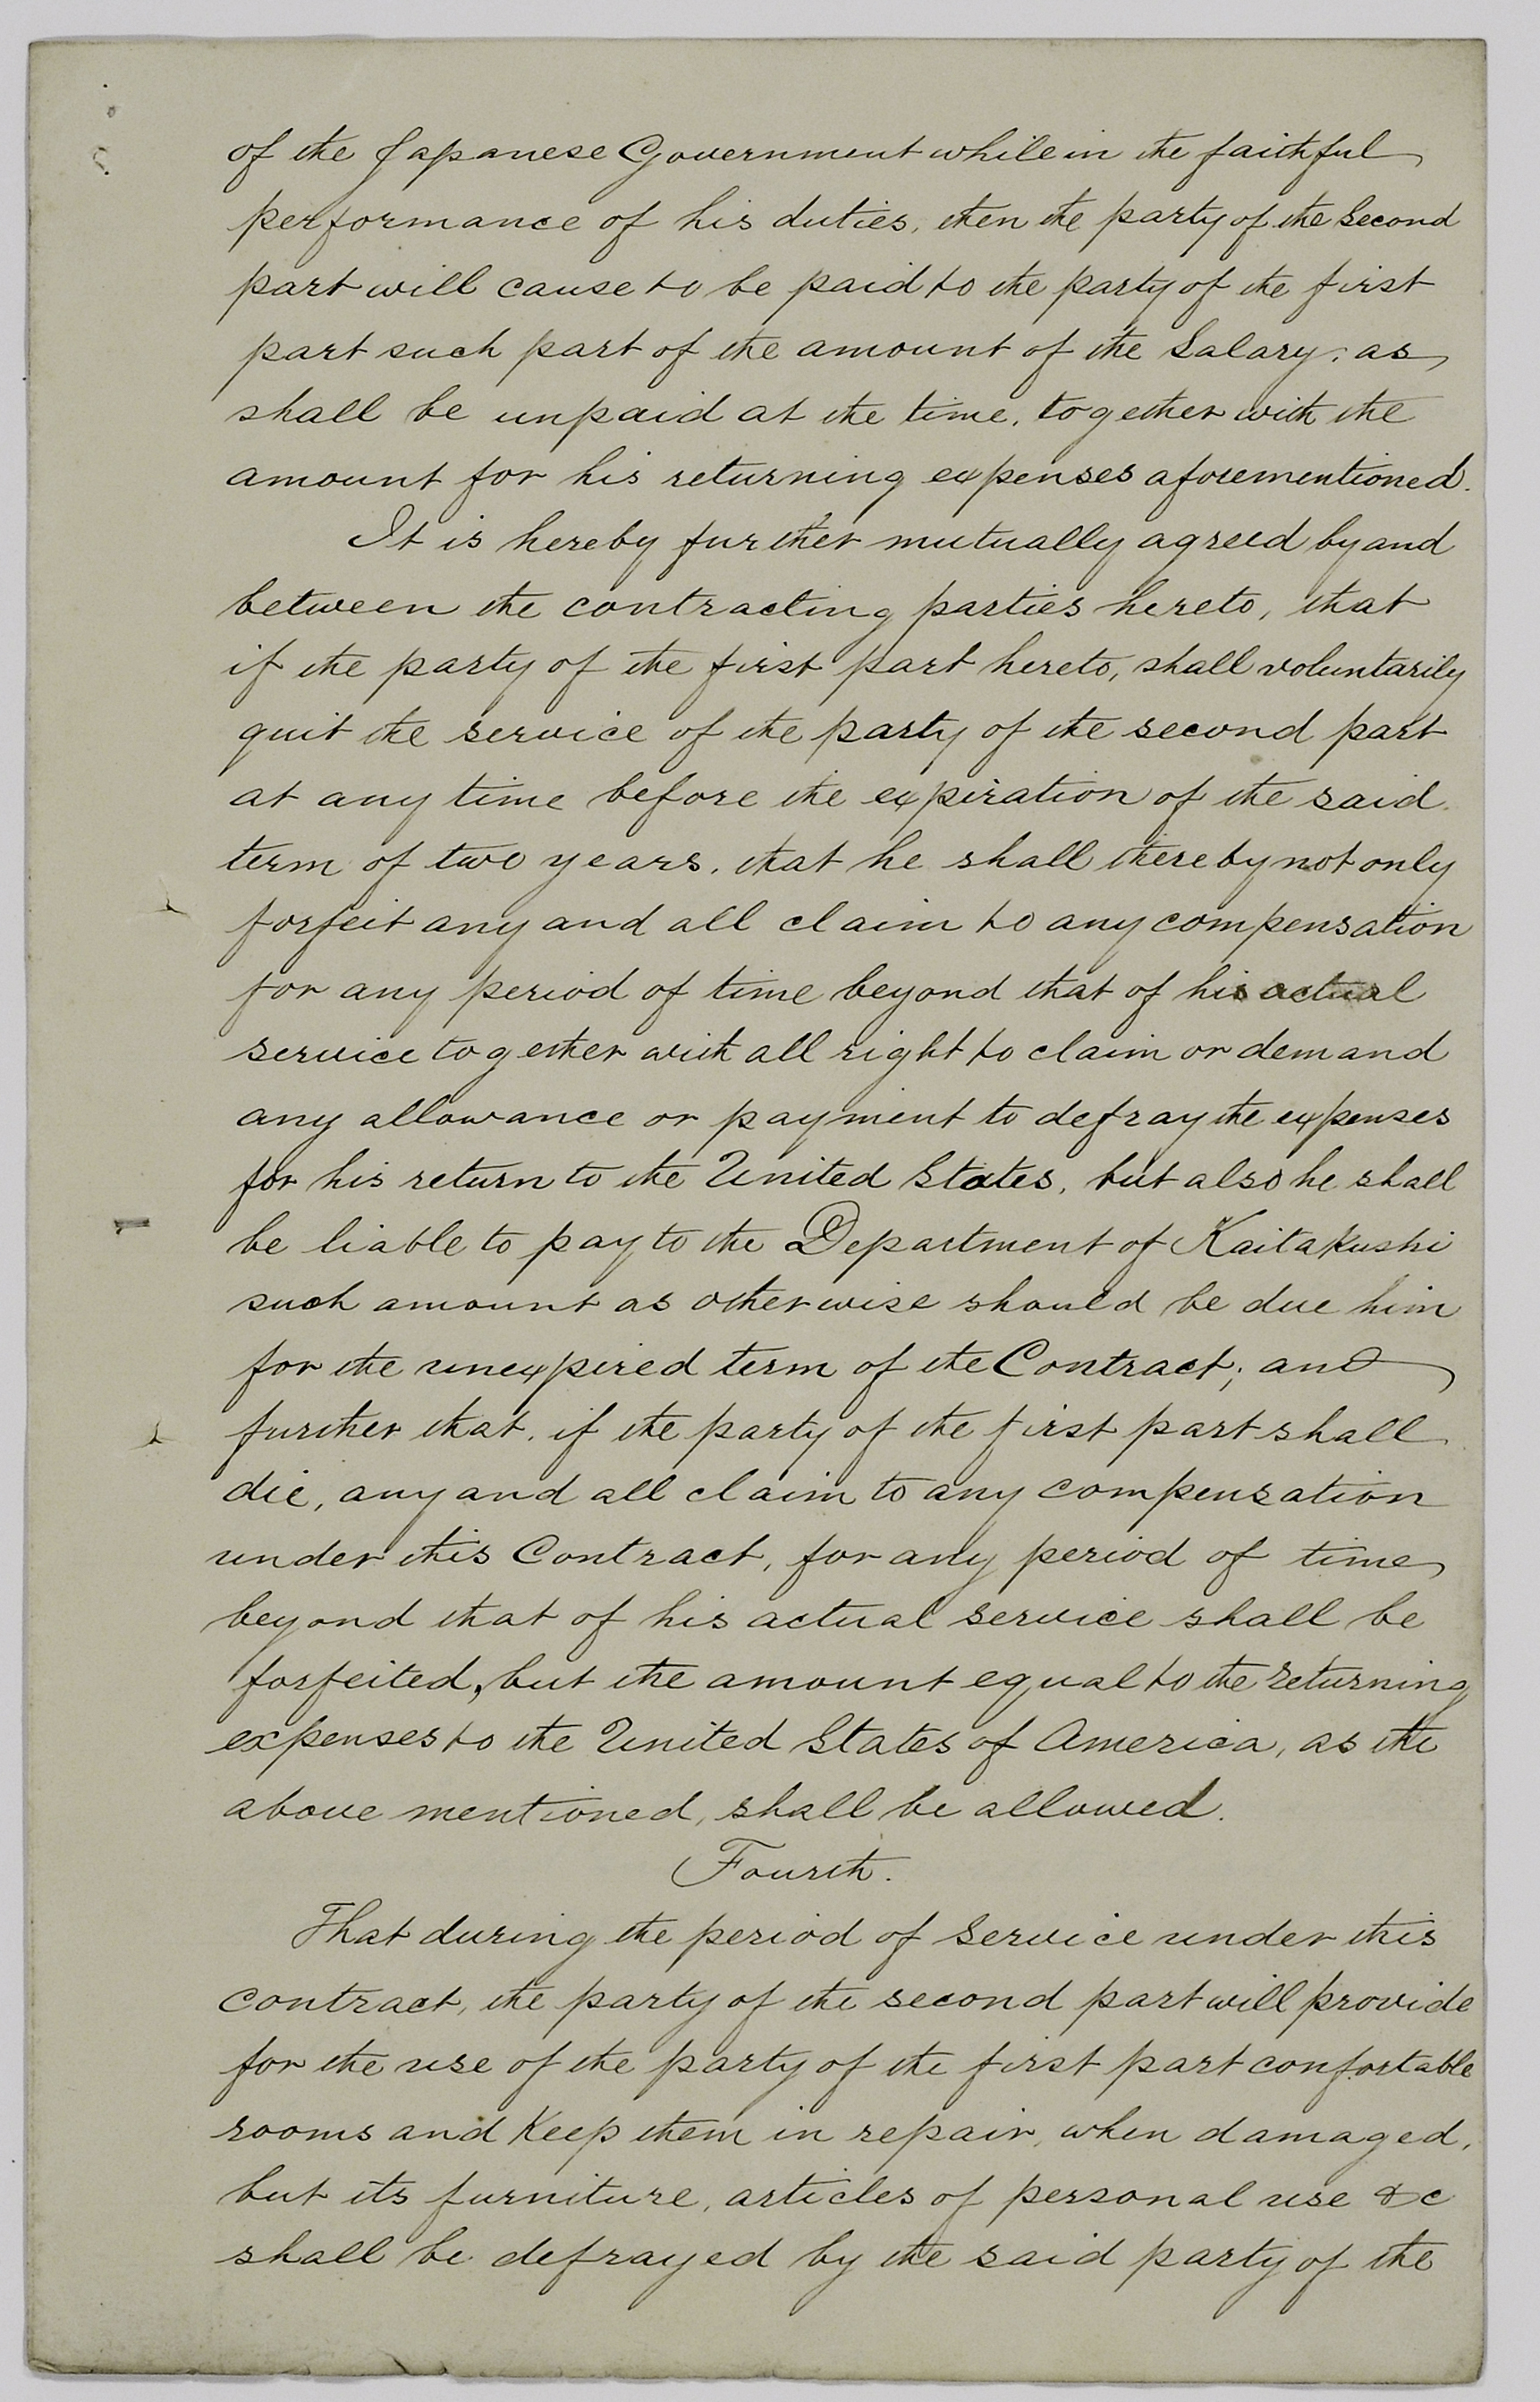 of the Japanese Government while in the faithful
performance of his duties, then the party of the Second
part will cause to be paid to the party of the first
part such part of the amount of the Salary, as
shall be unpaid at the time, together with the
amount for his returning expenses aforementioned.
It is hereby further mutually agreed by and
between the contracting parties hereto, that
if the party of the first part hereto, shall voluntarily
quit the service of the party of the second part
at any time before the expiration of the said
term of two years, that he shall thereby not only
forfeit any and all claim to any compensation
for any period of time beyond that of his actual
service together with all right to claim or demand
any allowance or payment to defray the expenses
for his return to the United States, but also he shall
be liable to pay to the Department of Kaitakushi
such amount as otherwise should be due him
for the unexpired term of the Contract; and
further that, if the party of the first part shall
die, any and all claim to any compensation
under this Contract, for any period of time
beyond that of his actual service shall be
forfeited, but the amount equal to the returning
expenses to the United States of America, as the
above mentioned, shall be allowed.
Fourth.
That during the period of Service under this
contract, the party of the second part will provide
for the use of the party of the first part confortable
rooms and Keep them in repair, when damaged,
but its furniture, articles of personal use &c
shall be defrayed by the said party of the